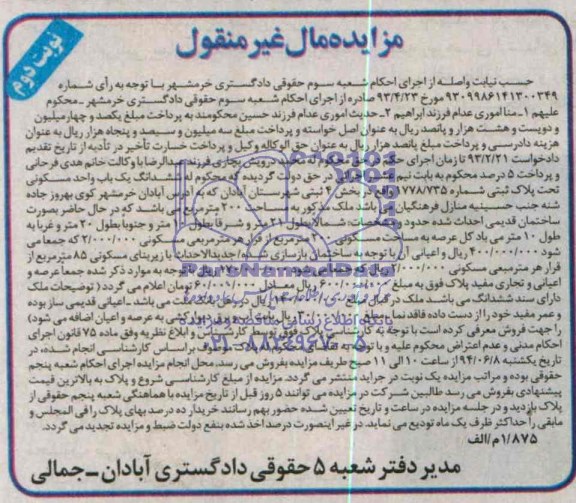 نوبت دوم
مزایده مال غیر منقول
حسب نیابت واصله از اجرای احکام شعبه سوم حقوقی دادگستری خرمشهر با توجه به رأی شماره
۹۳۰۹۹۸۶۱۴۱۳۰۰۳۴۹ مورخ ۹۳/۴/۲۳ صادره از اجرای احکام شعبه سوم حقوقی دادگستری خرمشهر - محکوم
علیهم ۱- منا اموری عدام فرزند ابراهیم ۲- حدیث اموری عدام فرزند حسین محکومند به پرداخت مبلغ یکصد و چهار میلیون
و دویست و هشت هزار و پانصد ریال به عنوان اصل خواسته و پرداخت مبلغ سه میلیون و سیصد و پنجاه هزار ریال به عنوان
هزینه دادرسی و پرداخت مبلغ پانصد هزار ریال به عنوان حق الوکاله وکیل و پرداخت خسارت تأخیر در تأدیه از تاریخ تقدیم
دادخواست ۹۳/۲/۲۱ تا زمان اجرای حکم درویش بجاری فرزند عبدالرضا با وکالت خانم هدی فرحانی
و پرداخت ۵ درصد محکوم به بابت نیم در حق دولت گردیده که محکوم له ششدانگ یک باب واحد مسکونی
تحت پلاک ثبتی شماره ۷۷۸/۷۳۵ واقع در بخش ۴ ثبتی شهرستان آبادان که به آدرس آبادان خرمشهر کوی بهروز جاده
شنه جنب حسینیه منازل فرهنگیان می باشد ملک مذکور به مساحت ۲۰۰ مترمربع می باشد که در حال حاضر بصورت
ساختمان قدیمی احداث شده حدود و مشخصات: شمالا بطول ۲۱ متر و شرقا بطول ۱۰ متر و جنوبا بطول ۲۰ متر و غربا به
طول ۱۰ متر می باد کل عرصه به مساحت مسکونی مترمربع از قرار هر مترمربعی مسکونی ۲/۰۰۰/۰۰۰ که جمعا می
شود ۴۰۰/۰۰۰/۰۰۰ ریال و اعیانی آن با توجه به ساختمان بازسازی شده/جدیدالاحداث با زیربنای مسکونی ۸۵ مترمربع از
قرار هر مترمربعی مسکونی ۲/۰۰۰/۰۰۰ ریال توجه به موارد ذکر شده جمعا عرصه و
اعیانی و تجاری مفید پلاک فوق به مبلغ ریال معادل تومان اعلام می گردد (توضیحات ملک
دارای سند ششدانگ می باشد ملک در قبال مبلغ ریال می باشد - اعیانی قدیمی ساز بوده
و عمر مفید خود را از دست داده فاقد نما به عرصه و اعیان اضافه می شود)
را جهت فروش معرفی کرده است با توجه به کارشناسی پلاک فوق توسط کارشناس و ابلاغ نظریه وفق ماده ۷۵ قانون اجرای
احکام مدنی و عدم اعتراض محکوم علیه و با توجه به تقاضای محکوم له پلاک موصوف براساس کارشناسی انجام شده، در
تاریخ یکشنبه ۹۴/۰۶/۸ از ساعت ۱۰ الی ۱۱ صبح طریف مزایده بفروش می رسد. محل انجام مزایده اجرای احکام شعبه پنجم
حقوقی بوده و مراتب مزایده یک نوبت در جراید منتشر می گردد. مزایده از مبلغ کارشناسی شروع و پلاک به بالاترین قیمت
پیشنهادی بفروش می رسد طالبین شرکت در مزایده می توانند ۵ روز قبل از تاریخ مزایده با هماهنگی شعبه پنجم حقوقی از
پلاک بازدید و در جلسه مزایده در ساعت و تاریخ تعیین شده حضور بهم رسانند خریدار ده درصد بهای پلاک را فی المجلس و
مابقی را حداکثر ظرف یک ماه تودیع می نماید. در غیر اینصورت درصد اخذ شده بنفع دولت ضبط و مزایده تجدید می گردد.
۱/۸۷۵م/الف
مدیر دفتر شعبه ۵ حقوقی دادگستری آبادان - جمالی
ParsNamadData
پایگاه اطلاع رسانی مناقصه و مزایده
۰۲۱-۸۸۳۴۹۶۷۰-۵